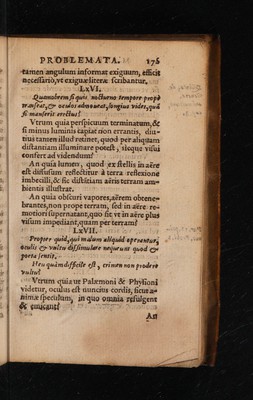 PROBLEMATA. 175
tamen angulum informat exiguum, efficit
necessario, vt exiguæ literæ scribantur.
LXVI.
Quamobrem si quis nocturno tempore propè
terræ sit, & oculos admoueat, longius videt, quā
si manserit erectus?
Vtrum quia perspicuum terminatum, &
si minus luminis capiat non errantis, diu-
tius tamen illud retinet, quod per aliquam
distantiam illuminare potest, idque visui
confert ad videndum?
An quia lumen, quod ex stellis in aëre
est diffusum reflectitur à terra reflexione
imbecilli, & sic distātiam aëris terram am-
bientis illustrat.
An quia obscuri vapores, aërem obtene-
brantes, non prope terram, sed in aëre re-
motiori supernatant, quo fit vt in aëre plus
visum impediant, quam per terram?
LXVII.
Propter quid, qui malum aliquid operantur,
oculis & vultu dissimulare nequeunt quod &
porta sensit,
Heu quàm difficile est, crimen non prodere
vultu?
Vtrum quia ut Palæmoni & Physioni
videtur, oculus est nuncius cordis, sicut a-
nimæ speculum, in quo omnia refulgent
& emicant?
An